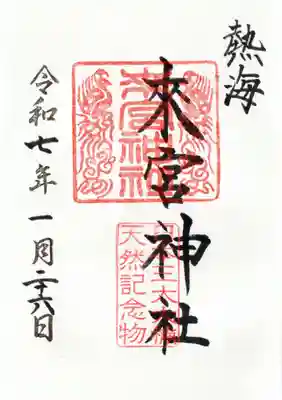 熱海
來宮神社
来宮神社
三大
天然記念物
令和七年一月二十六日